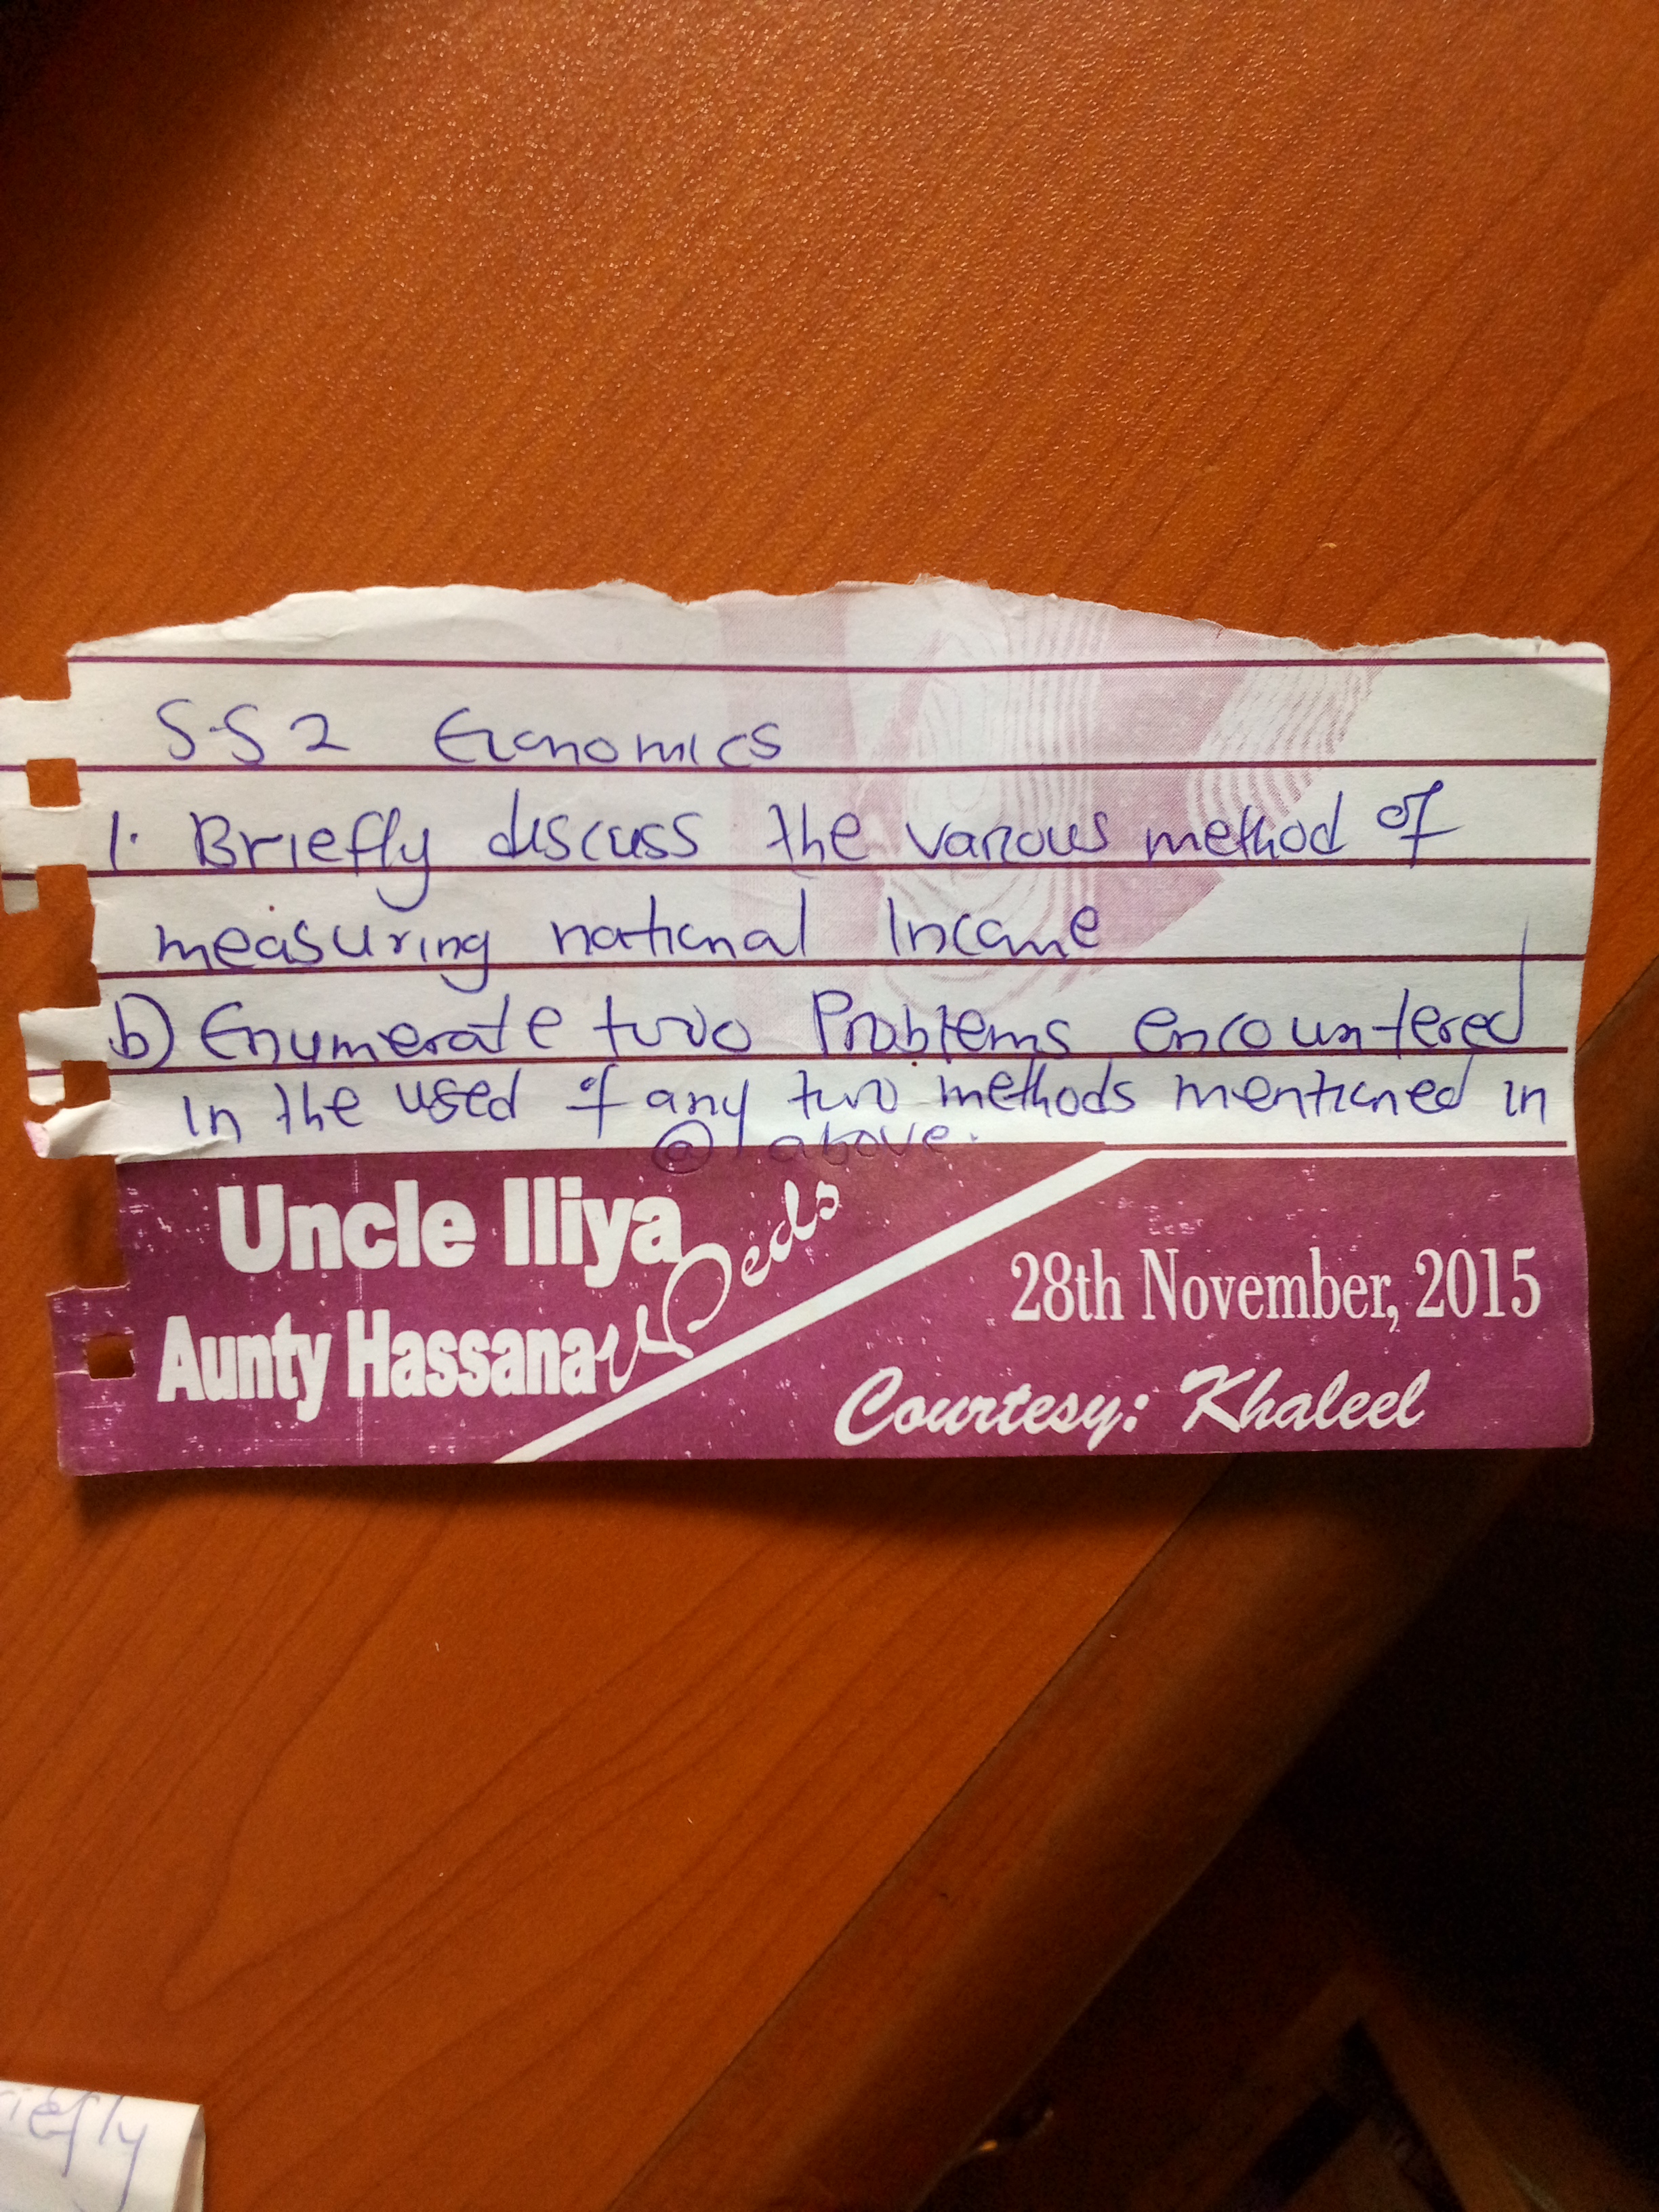 S.S 2 Economics
1. Briefly discuss the various method of
measuring national Income
b) Enumerate two Problems encountered
in the used of any two methods mentioned in
@ above.
Uncle Iliya
Weds
Aunty Hassana
28th November, 2015
Courtesy: Khaleel
iefly